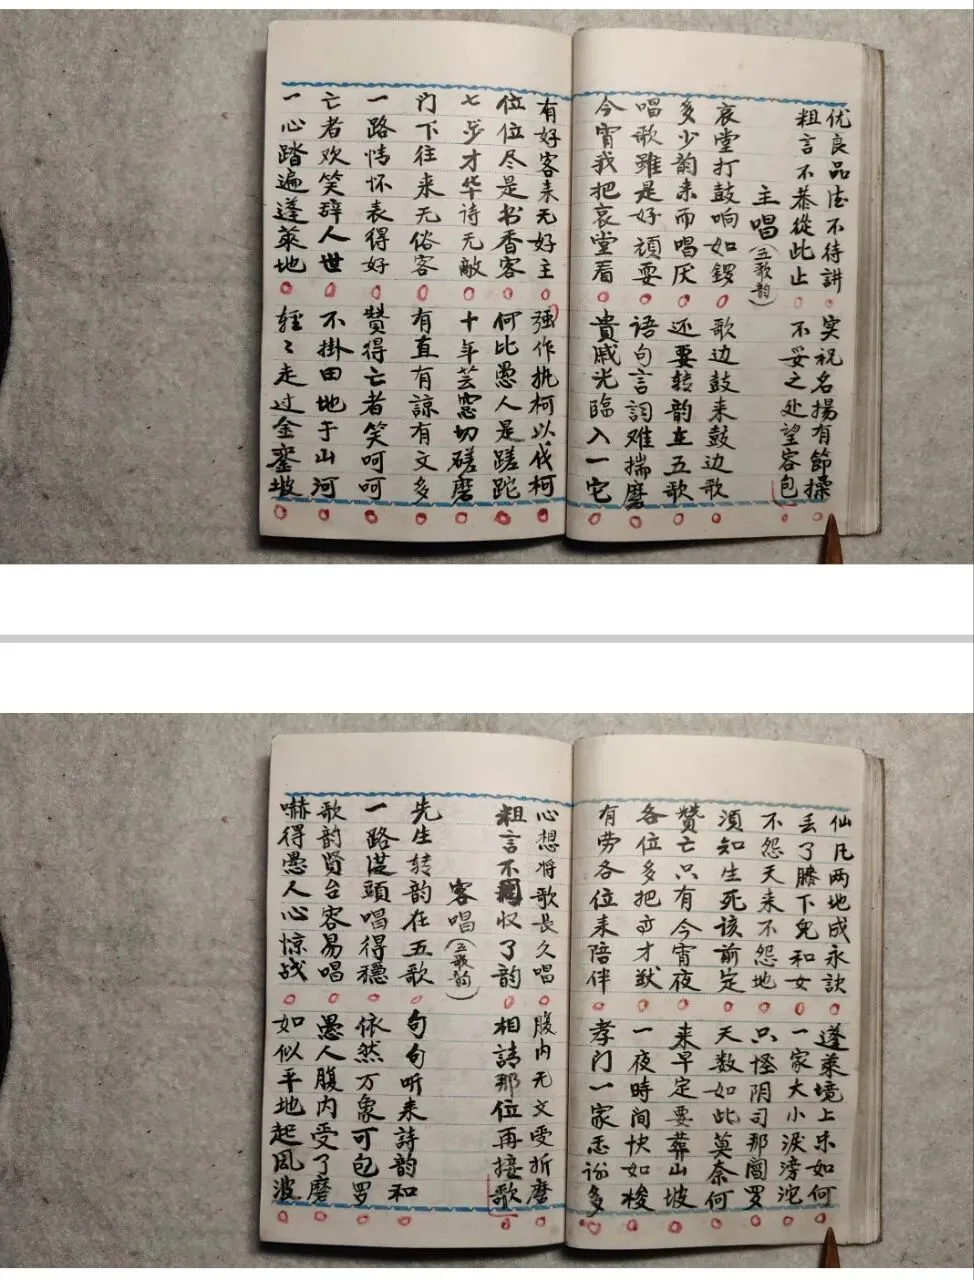 优良品法不待讲 实祝名揚有節操
粗言不恭從此止 不妥之处望客包
主唱(五歌韵)
哀堂打鼓响如鑼 歌边鼓来鼓边歌
多少韵来而唱厌 还要转韵在五歌
唱歌雖是好頑耍 语句言詞难揣磨
今宵我把哀堂看 貴戚光臨入一宅
有好客来无好主 强作执柯以伐柯
位位尽是书香客 何比愚人是蹉跎
七步才华诗无敵 十年芸窓切磋磨
门下往来无俗客 有直有諒有文多
一路情怀表得好 贊得亡者笑呵呵
亡者欢笑辞人世 不掛田地于山河
一心踏遍蓬萊地 輕々走过金鑾坡
仙凡两地成永訣 蓬萊境上乐如何
丢了膝下儿和女 一家大小淚滂沱
不怨天来不怨地 只怪阴司那閻罗
須知生死该前定 天数如此莫奈何
贊亡只有今宵夜 来早定要葬山坡
各位多把才献 一夜時间快如梭
有劳各位来陪伴 孝门一家恙谢多
心想将歌長久唱 腹内无文受折磨
粗言不收了韵 相請那位再接歌
客唱(五歌韵)
先生转韵在五歌 句句听来詩韵和
一路從頭唱得穩 依然万象可包罗
歌韵賢台容易唱 愚人腹内受了磨
嚇得愚人心惊战 如似平地起风波